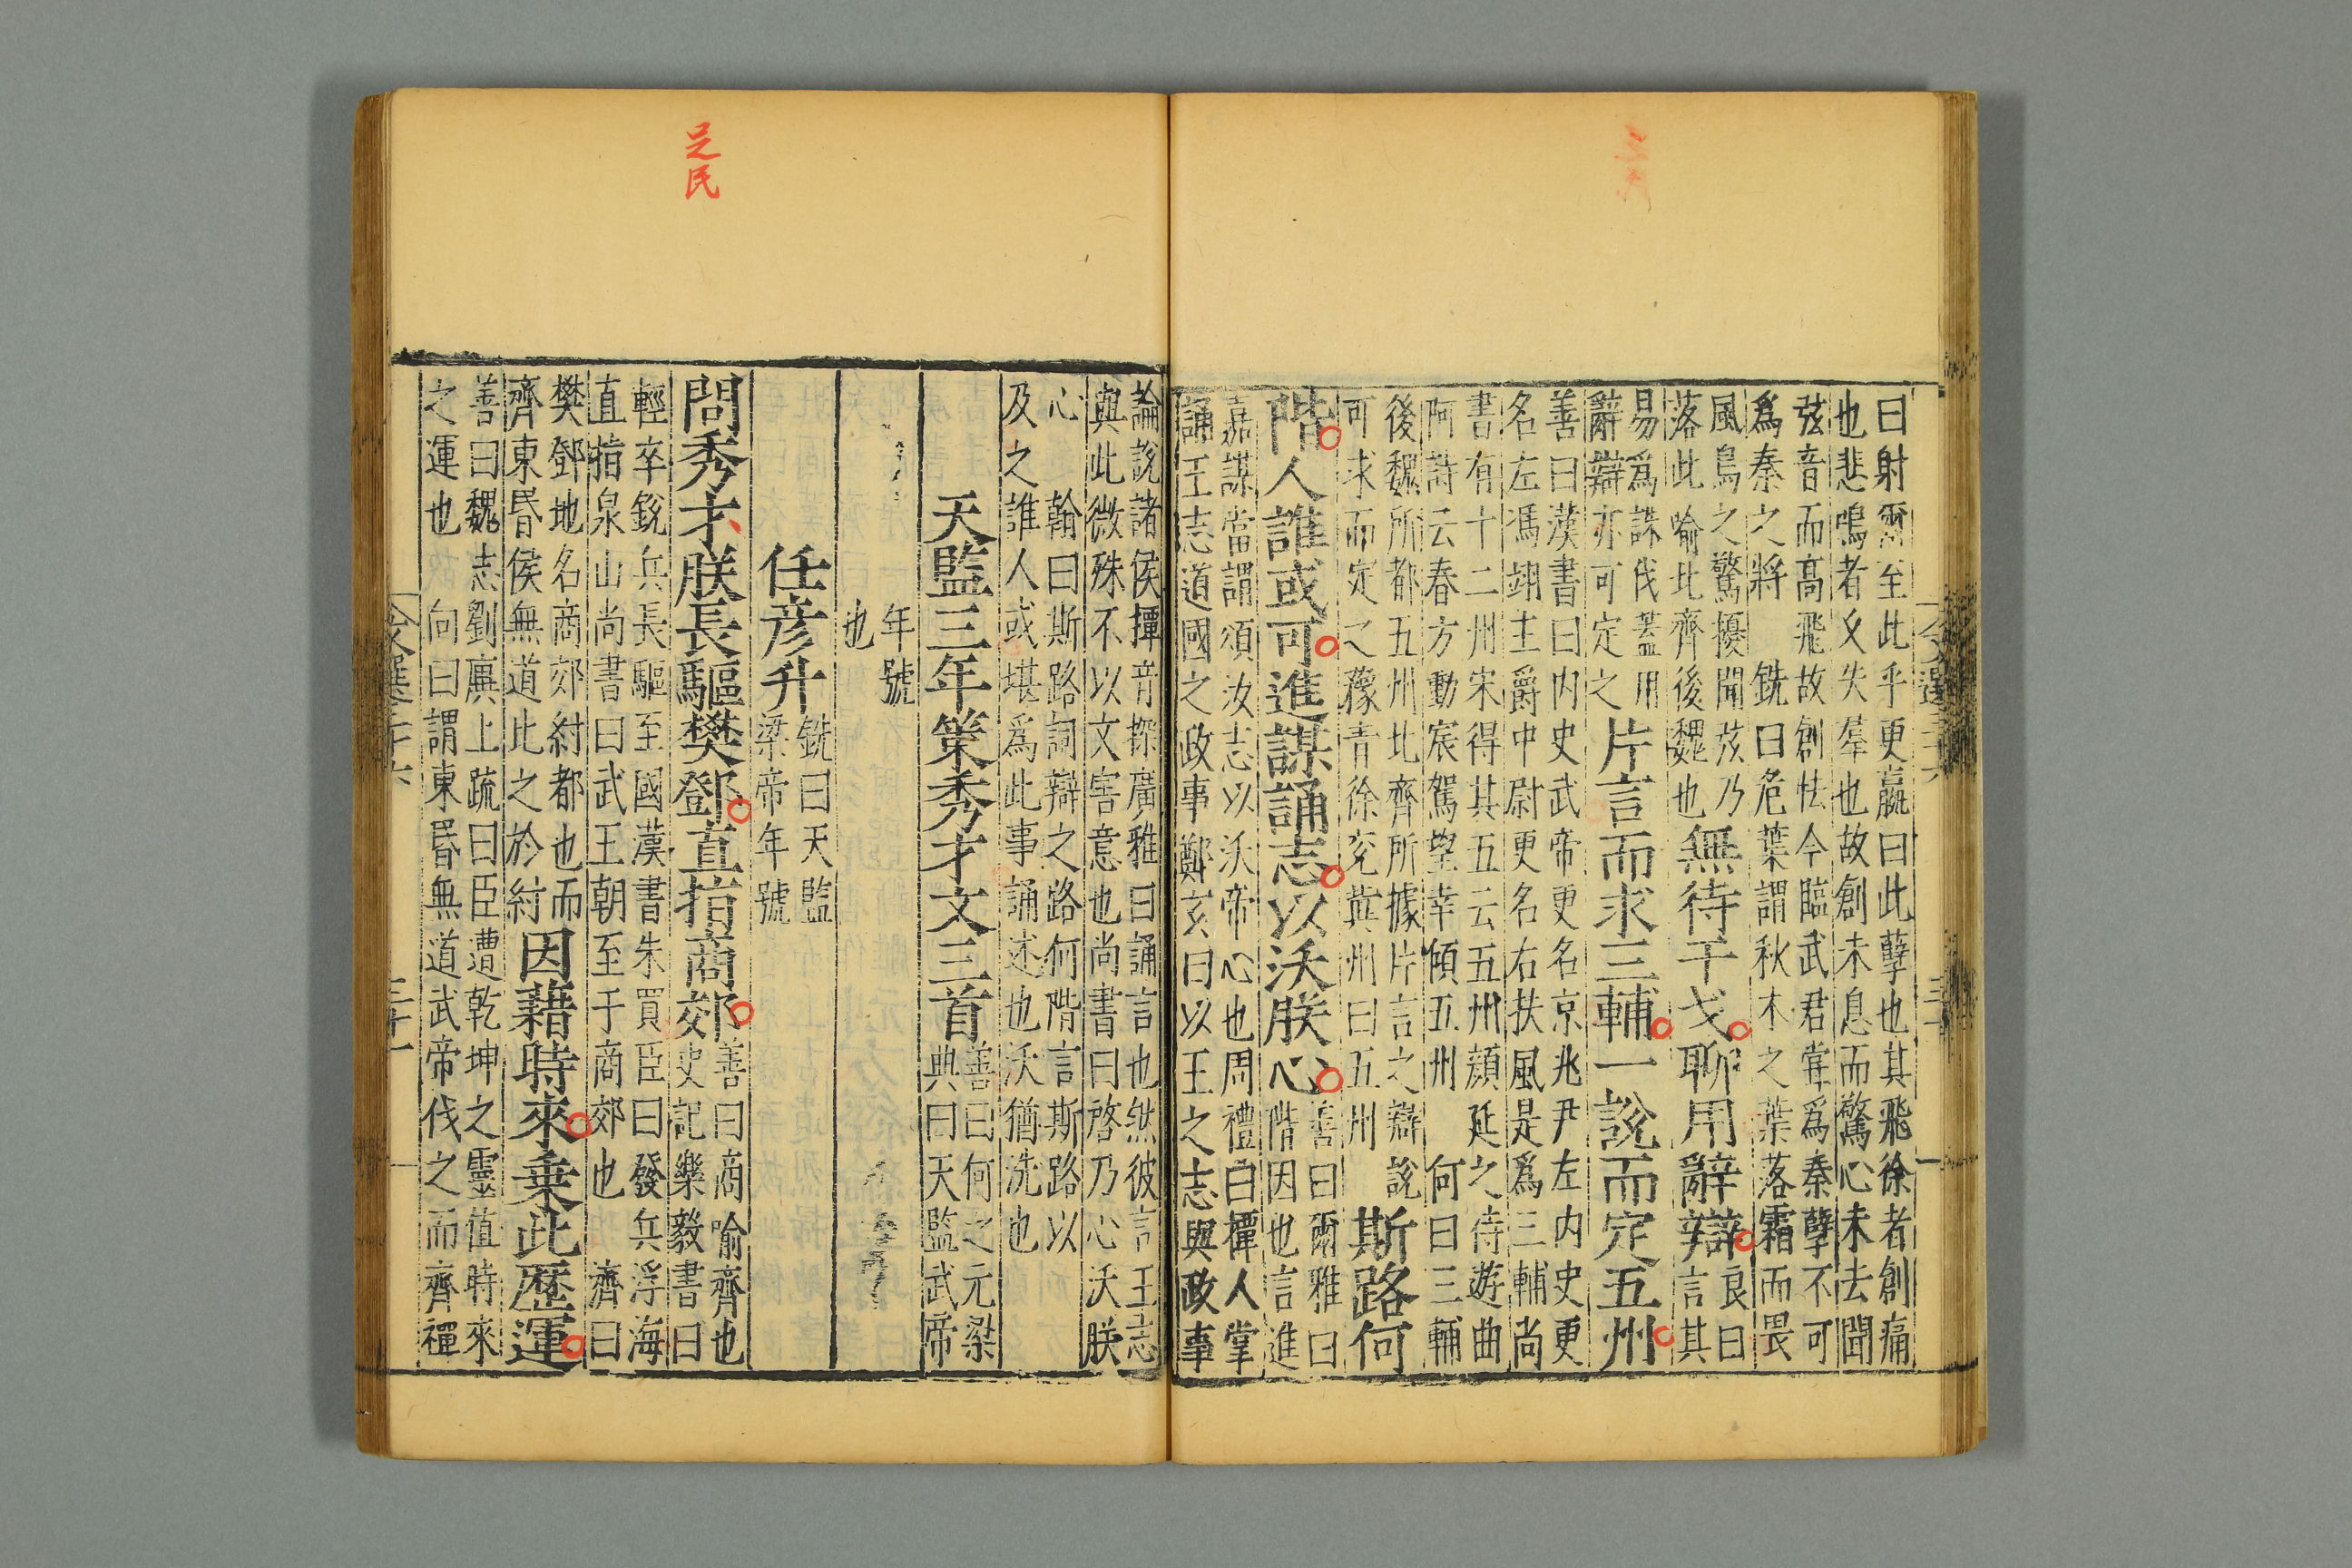 曰射爾至此乎更嬴曰此孽也其飛徐者創痛
也悲鳴者久失羣也故創未息而驚心未去聞
弦音而高飛故創怯今臨武君甞爲秦孽不可
爲秦之將 銑曰危葉謂秋木之葉落霜而畏
風鳥之驚擾聞弦乃
落此喻北齊後魏也
無待干戈聊用辭辯
良曰
言其
易爲誅伐蓋用
辭辯亦可定之
片言而求三輔一說而定五州
善曰漢書曰内史武帝更名京兆尹左内史更
名左馮翊主爵中尉更名右扶風是爲三輔尚
書有十二州宋得其五云五州顏延之侍遊曲
阿詩云春方動宸駕望幸傾五州 何曰三輔
後魏所都五州北齊所據片言之辯說
可求而定之豫青徐兗冀州曰五州
斯路何
階人誰或可進謀誦志以沃朕心
善曰爾雅曰
階因也言進
嘉謀當謂須汝志以沃帝心也周禮曰撢人掌
誦王志道國之政事鄭玄曰以王之志與政事
論說諸侯撢音探廣雅曰誦言也然彼言王志
與此微殊不以文害意也尚書曰啓乃心沃朕
心 翰曰斯路詞辯之路何階言斯路以
及之誰人或堪爲此事誦述也沃猶洗也
天監三年策秀才文三首
善曰何之元梁
典曰天監武帝
年號
也
任彦升
銑曰天監
梁帝年號
問秀才朕長驅樊鄧直指商郊
善曰商喻齊也
史記樂毅書曰
輕卒銳兵長驅至國漢書朱買臣曰發兵浮海
直指泉山尚書曰武王朝至于商郊也 濟曰
樊鄧地名商郊紂都也而
齊東昬侯無道此之於紂
因藉時來乗此歴運
善曰魏志劉廙上疏曰臣遭乾坤之靈值時來
之運也 向曰謂東昬無道武帝伐之而齊禪
文選二十六
三十一
民